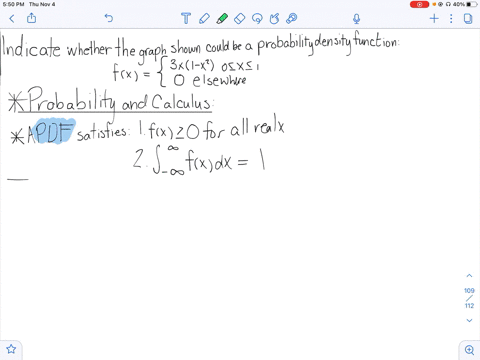 5:50 PM Thu Nov 4
40%
Indicate whether the graph shown could be a probability density function:
f(x) = { 3x(1-x²) 0≤x≤1
0 elsewhere
*Probability and Calculus:
*A PDF satisfies: 1. f(x) ≥ 0 for all real x
2. ∫_{-∞}^{∞} f(x) dx = 1
109
/
112